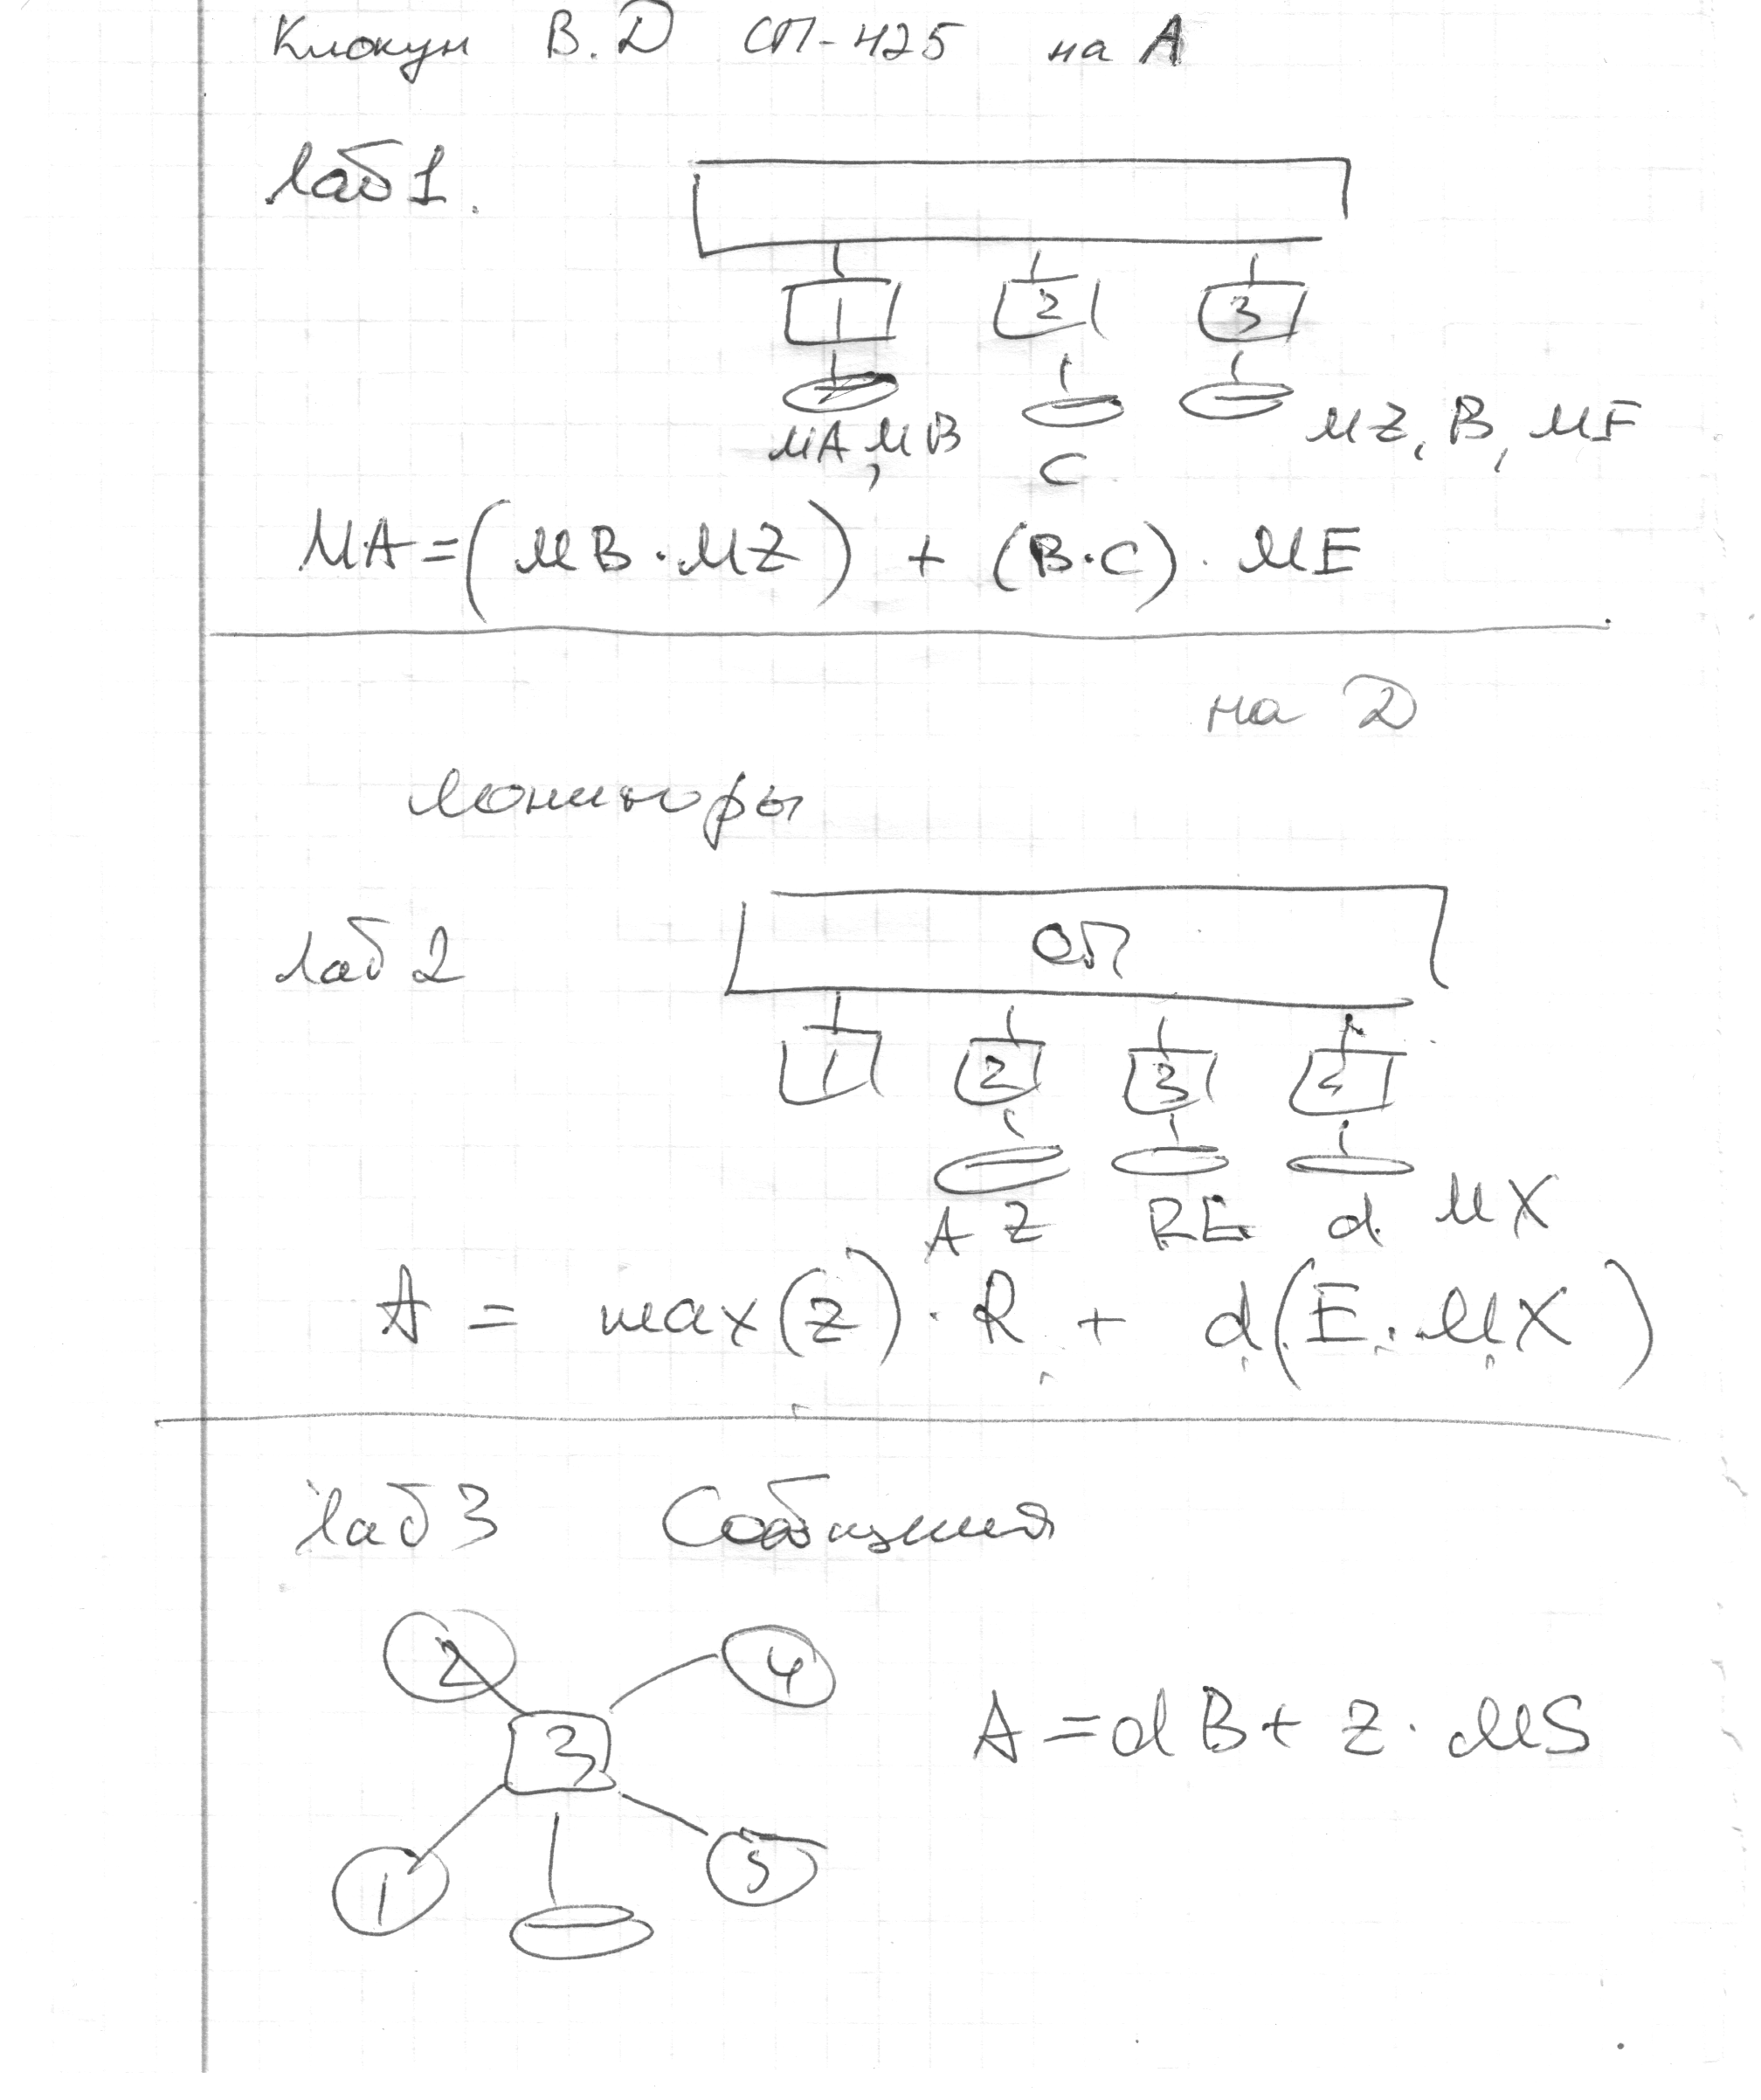 Клокун В.Д СП-425 на А
Лаб 1.
1 2 3
MA, MB
C
MZ, B, ME
MA = (MB · MZ) + (B·C) · ME
на Д
Мониторы
Лаб 2
ОП
1 2 3 4
A Z
R E
d MX
A = max(z) · R + d(E · MX)
Лаб 3 Сообщения
2 4
3
A = dB + Z · MS
1 5